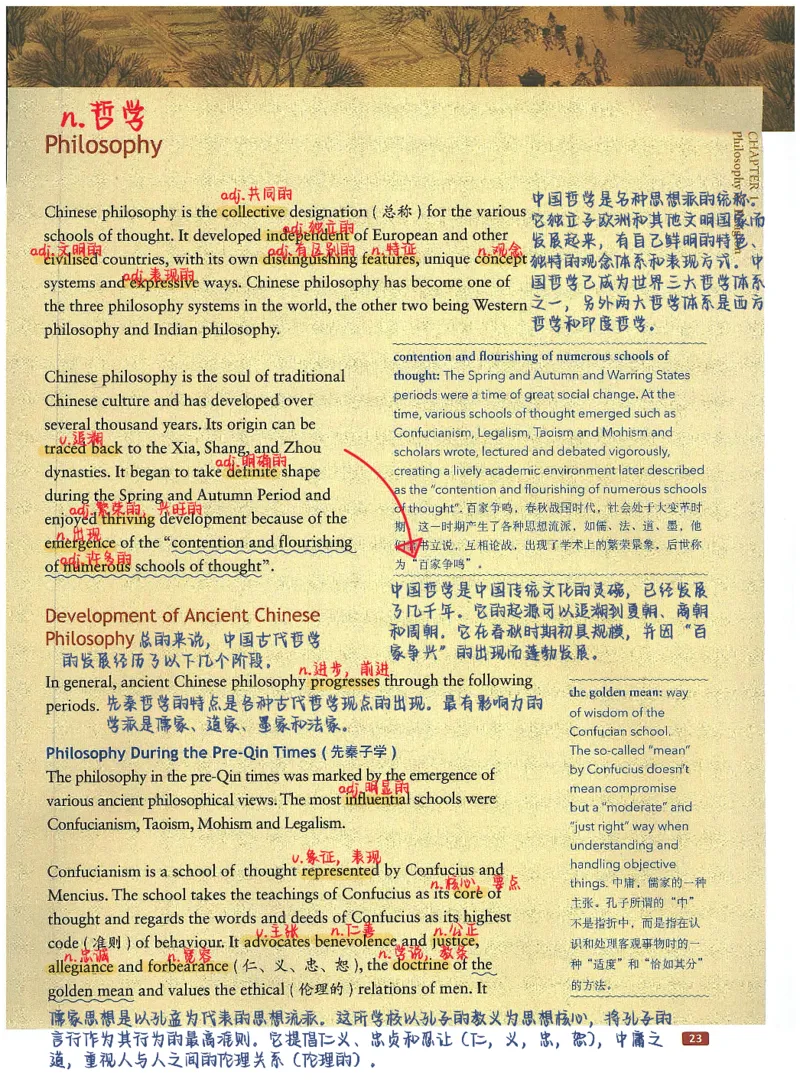 n.哲学
Philosophy
CHAPTER 1
Philosophy
adj.共同的
Chinese philosophy is the collective designation ( 总称 ) for the various
adj.独立的
schools of thought. It developed independent of European and other
adj.文明的 adj.有区别的 n.特征 n.观念
civilised countries, with its own distinguishing features, unique concept
adj.表现的
systems and expressive ways. Chinese philosophy has become one of
the three philosophy systems in the world, the other two being Western
philosophy and Indian philosophy.
中国哲学是各种思想派的统称.
它独立于欧洲和其他文明国家而
发展起来，有自己鲜明的特色、
独特的观念体系和表现方式. 中
国哲学已成为世界三大哲学体系
之一，另外两大哲学体系是西方
哲学和印度哲学.
Chinese philosophy is the soul of traditional
Chinese culture and has developed over
several thousand years. Its origin can be
v.追溯
traced back to the Xia, Shang, and Zhou
adj.明确的
dynasties. It began to take definite shape
during the Spring and Autumn Period and
adj.繁荣的，兴旺的
enjoyed thriving development because of the
n.出现
emergence of the “contention and flourishing
adj.许多的
of numerous schools of thought”.
contention and flourishing of numerous schools of
thought: The Spring and Autumn and Warring States
periods were a time of great social change. At the
time, various schools of thought emerged such as
Confucianism, Legalism, Taoism and Mohism and
scholars wrote, lectured and debated vigorously,
creating a lively academic environment later described
as the “contention and flourishing of numerous schools
of thought”. 百家争鸣，春秋战国时代，社会处于大变革时
期，这一时期产生了各种思想流派，如儒、法、道、墨，他
们著书立说，互相论战，出现了学术上的繁荣景象，后世称
为“百家争鸣”。
中国哲学是中国传统文化的灵魂，已经发展
了几千年. 它的起源可以追溯到夏朝、商朝
和周朝. 它在春秋时期初具规模，并因“百
家争兴”的出现而蓬勃发展.
Development of Ancient Chinese
Philosophy 总的来说，中国古代哲学
的发展经历了以下几个阶段.
n.进步，前进
In general, ancient Chinese philosophy progresses through the following
periods. 先秦哲学的特点是各种古代哲学观点的出现. 最有影响力的
学派是儒家、道家、墨家和法家.
Philosophy During the Pre-Qin Times ( 先秦子学 )
The philosophy in the pre-Qin times was marked by the emergence of
adj.明显的
various ancient philosophical views. The most influential schools were
Confucianism, Taoism, Mohism and Legalism.
v.象征，表现
Confucianism is a school of thought represented by Confucius and
n.核心，要点
Mencius. The school takes the teachings of Confucius as its core of
thought and regards the words and deeds of Confucius as its highest
v.主张 n.仁善 n.公正
code ( 准则 ) of behaviour. It advocates benevolence and justice,
n.忠诚 n.宽容 n.学说，教条
allegiance and forbearance ( 仁、义、忠、恕 ), the doctrine of the
golden mean and values the ethical ( 伦理的 ) relations of men. It
the golden mean: way
of wisdom of the
Confucian school.
The so-called “mean”
by Confucius doesn’t
mean compromise
but a “moderate” and
“just right” way when
understanding and
handling objective
things. 中庸，儒家的一种
主张。孔子所谓的“中”
不是指折中，而是指在认
识和处理客观事物时的一
种“适度”和“恰如其分”
的方法。
儒家思想是以孔孟为代表的思想流派. 这所学校以孔子的教义为思想核心，将孔子的
言行作为其行为的最高准则. 它提倡仁义、忠贞和忍让（仁，义，忠，恕），中庸之
道，重视人与人之间的伦理关系（伦理的）.
23